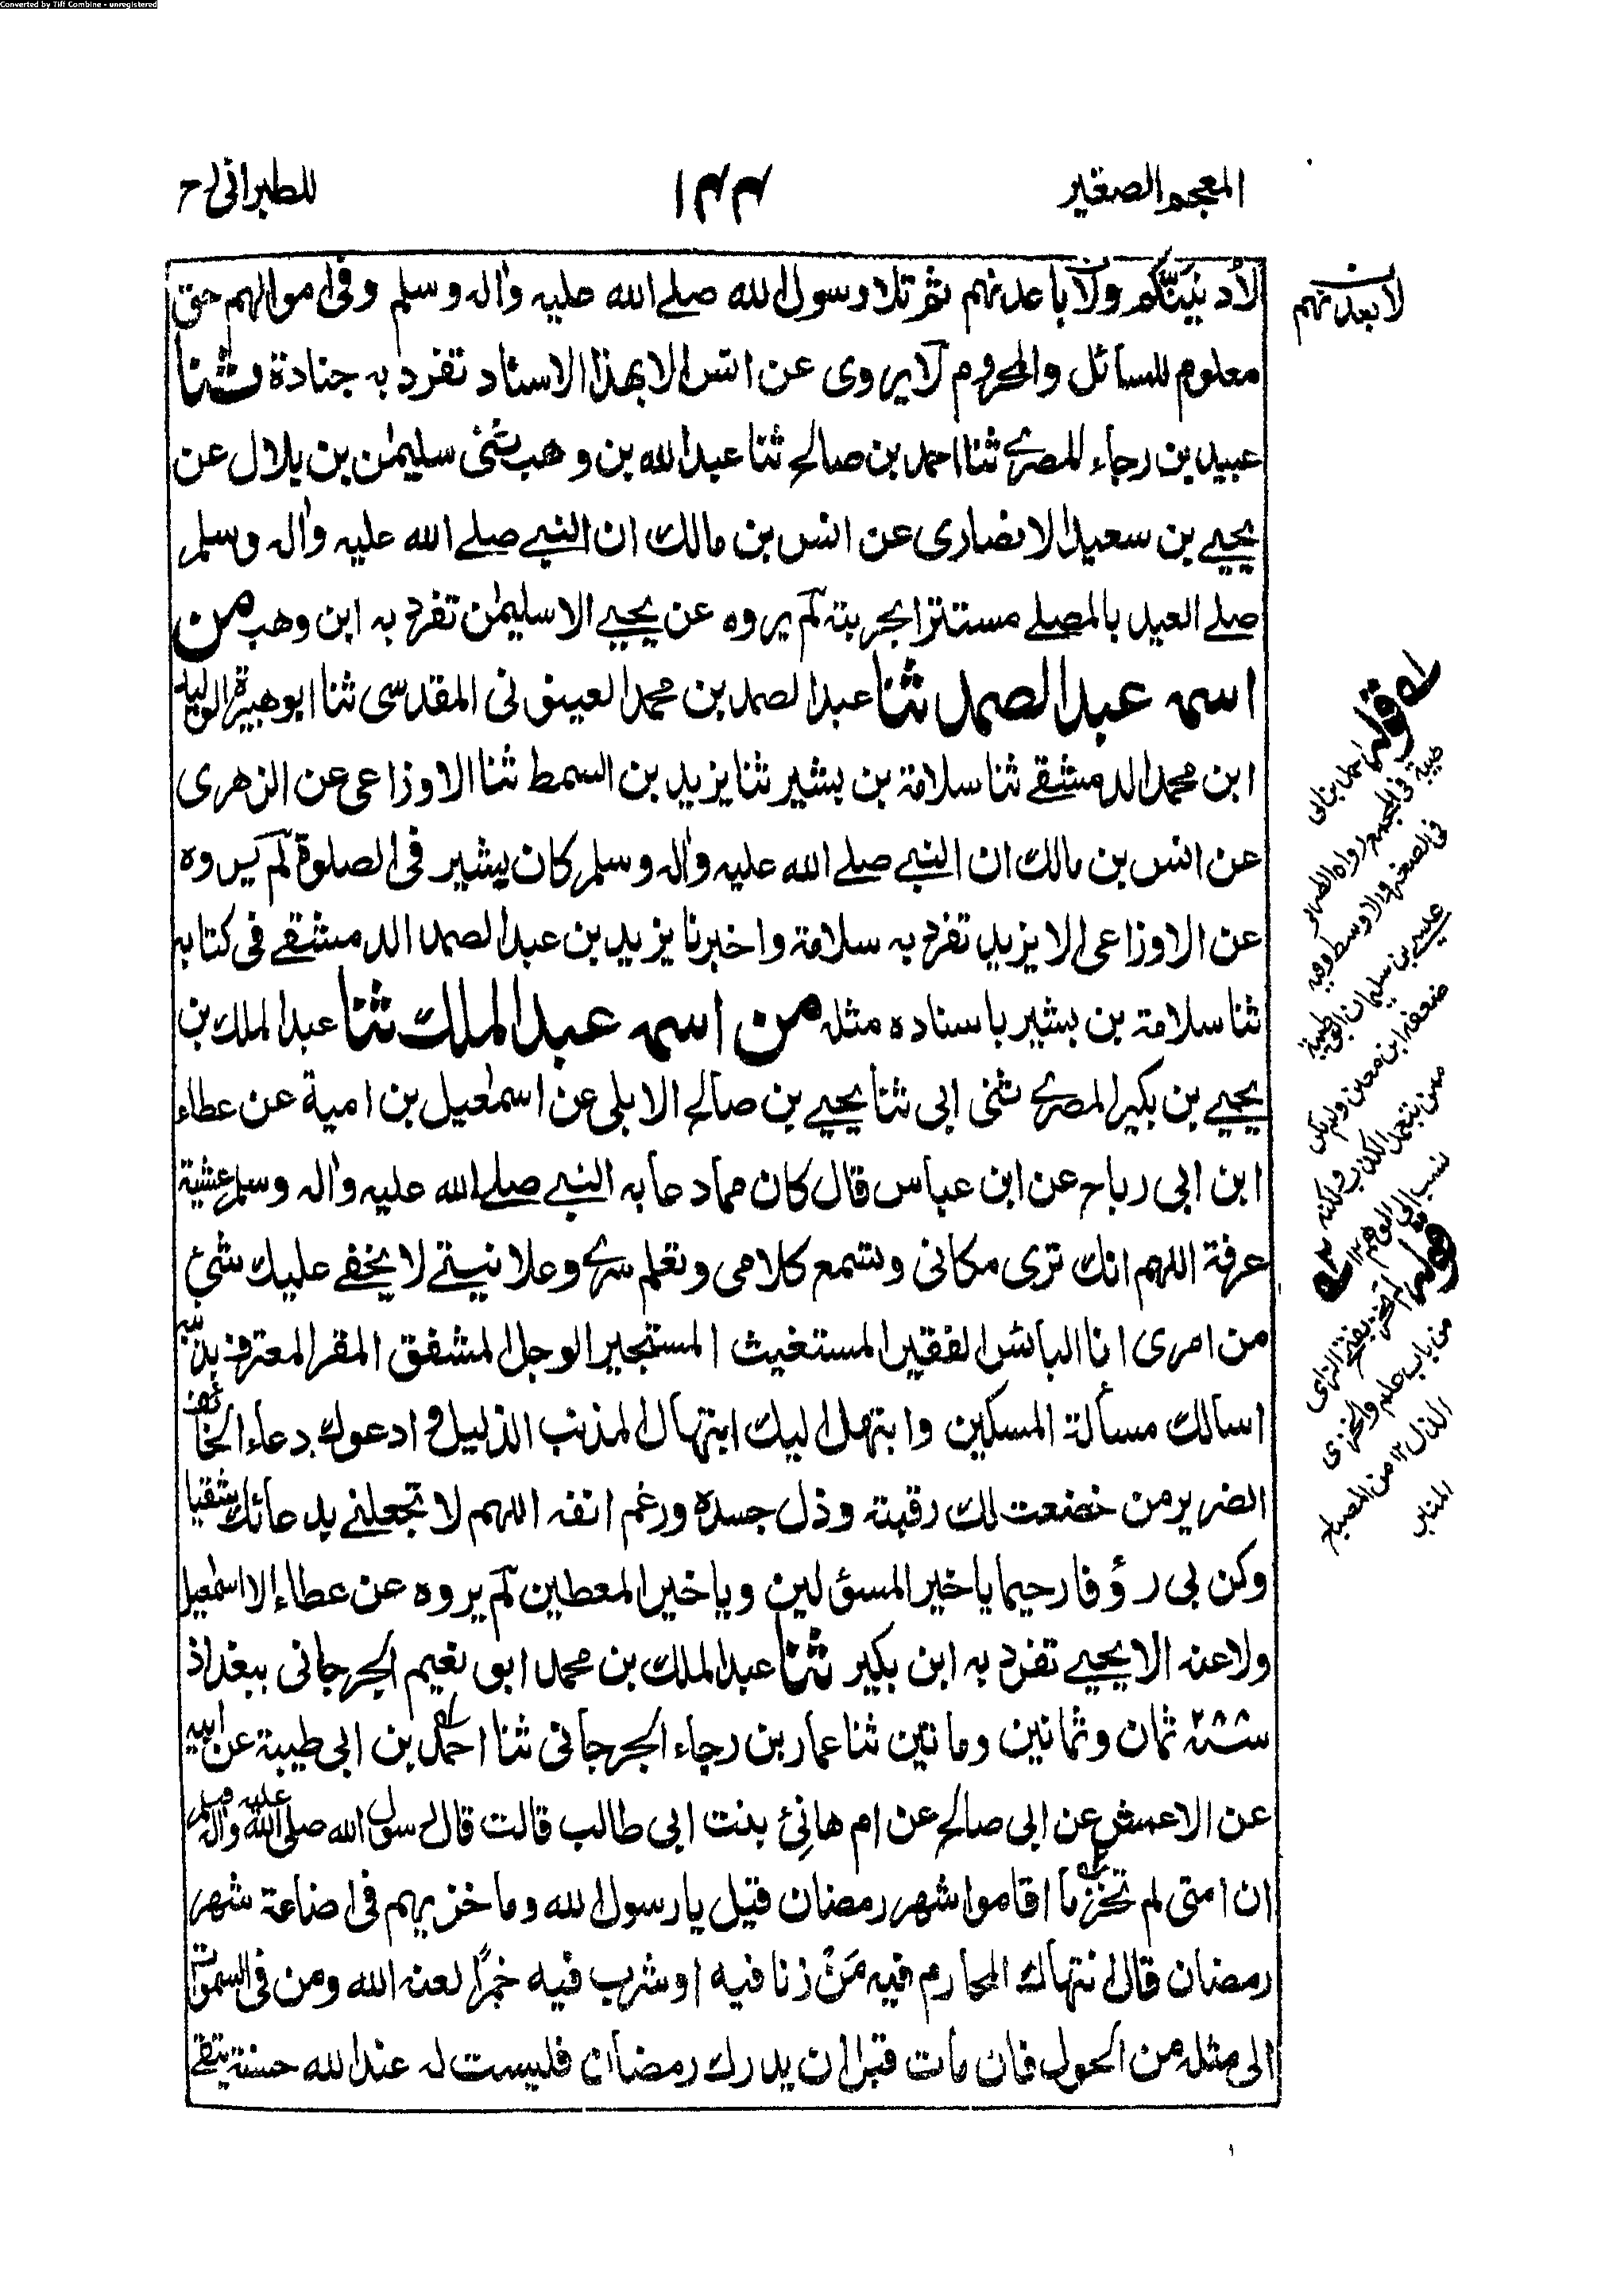 Converted by Tiff Combine - unregistered
المعجم الصغير
١٤٤
للطبرانی رح
لأدنينكم ولاباعدنهم ثم تلا رسول الله صلے الله عليه واٰله وسلم وفی اموالهم حق
معلوم للسائل والمحروم لايروی عن انس الا بهذا الاسناد تفرد به جنادة ثنا
عبيد بن رجاء المصرے ثنا احمد بن صالح ثنا عبد الله بن وهب ثنی سليمٰن بن بلال عن
يحيے بن سعيد الانصاری عن انس بن مالك ان النبے صلے الله عليه واٰله وسلم
صلے العيد بالمصلے مستترا بحربته لم يروه عن يحيے الا سليمٰن تفرد به ابن وهب من
اسمه عبد الصمد ثنا عبد الصمد بن محمد العينونی المقدسی ثنا ابو هبيرة الوليد
ابن محمد الدمشقے ثنا سلامة بن بشير ثنا يزيد بن السمط ثنا الاوزاعی عن الزهری
عن انس بن مالك ان النبے صلے الله عليه واٰله وسلم كان يشير فی الصلوة لم يروه
عن الاوزاعی الا يزيد تفرد به سلامة واخبرنا يزيد بن عبد الصمد الدمشقے فی كتابه
ثنا سلامة بن بشير باسناده مثله من اسمه عبد الملك ثنا عبد الملك بن
يحيے بن بكير المصرے ثنی ابی ثنا يحيے بن صالح الايلی عن اسمٰعيل بن امية عن عطاء
ابن ابی رباح عن ابن عباس قال كان مما دعا به النبے صلے الله عليه واٰله وسلم عشية
عرفة اللهم انك تری مكانی وتسمع كلامی وتعلم سرے وعلانيتے لا يخفے عليك شئ
من امری انا البائس الفقير المستغيث المستجير الوجل المشفق المقر المعترف بذنبه
اسالك مسألة المسكين وابتهل اليك ابتهال المذنب الذليل وادعوك دعاء الخائف
الضرير من خضعت لك رقبته وذل جسده ورغم انفه اللهم لا تجعلنے بدعائك شقيا
وكن بی رؤفا رحيما يا خير المسؤلين ويا خير المعطين لم يروه عن عطاء الا اسمٰعيل
ولا عنه الا يحيے تفرد به ابن بكير ثنا عبد الملك بن محمد ابو نعيم الجرجانی ببغداذ
سنة ٢٨٨ ثمان وثمانين ومائتين ثنا عمار بن رجاء الجرجانی ثنا احمد بن ابی طيبة عن ابيه
عن الاعمش عن ابی صالح عن ام هانئ بنت ابی طالب قالت قال رسول الله صلی الله عليه واٰله وسلم
ان امتی لم تخز ما اقاموا شهر رمضان قيل يا رسول الله وما خزيهم فی اضاعة شهر
رمضان قال انتهاك المحارم فيه من زنا فيه او شرب فيه خمرا لعنه الله ومن فی السموات
الی مثله من الحول فان مات قبل ان يدرك رمضان فليست له عند الله حسنة يتقے
لابعدنهم
قوله احمد بن ابی
طيبة فی المجمع رواه الطبرانی
فی الصغير والاوسط وفيه
عيسے بن سليمان ابو طيبة
ضعفه ابن معين ولم يكن
ممن يتعمد الكذب ولكنه
نسب الی الوهم ١٢
قوله لم تخز بفتح الزای
من باب علم والخزی
الذل ١٢ من المصباح
المنير